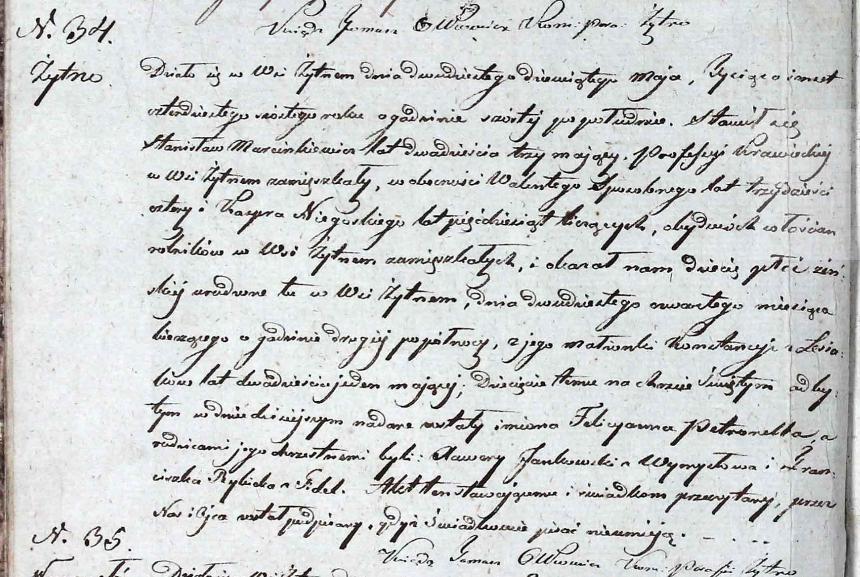 N. 34. Xiądz Tomasz Kom: para: Żytno
Żytno. Działo się w Wsi Żytnem dnia dwudziestego dziewiątego Maja, Tysiąc ośmset
czterdziestego szóstego roku o godzinie szóstej po południu. Stawił się
Stanisław Marcinkiewicz lat dwadzieścia trzy mający, Professyi Krawieckiej
w Wsi Żytnem zamięszkały, w obecności Walentego Sposobnego lat trzydzieści
cztery i Kacpra Niegoskiego lat pięćdziesiąt liczących, obydwóch włościan
rolników w Wsi Żytnem zamięszkałych, i okazał nam dziecię płci żeń
skiéj urodzone tu w Wsi Żytnem, dnia dwudziestego czwartego miesiąca
bieżącego o godzinie drugiej po północy, z jego małżonki Konstancyi z Lesia:
ków lat dwadzieścia jeden mającej; Dziecięciu temu na chrzcie Świętym odby:
tym w dniu dzisiejszym nadane zostały imiona Felicyanna Petronella, a
rodzicami jego chrzestnemi byli: Xawery Jankowski z Wymysłowa i Fran:
ciszka Rybicka z Fidel. Akt ten stawającemu i świadkom przeczytany, przez
Nas i Ojca został podpisany, gdyż świadkowie pisać nieumieją.
N. 35 Xiądz Tomasz Kom: Para: Żytno
Działo